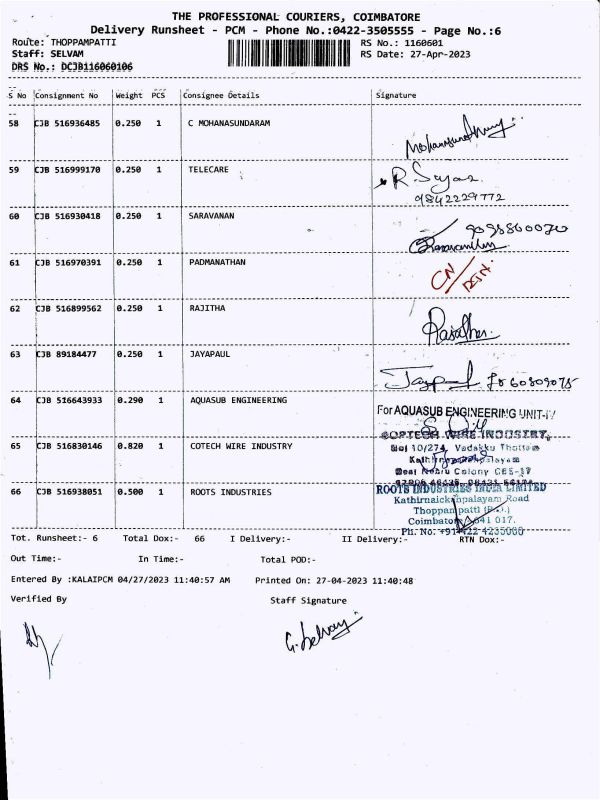 THE PROFESSIONAL COURIERS, COIMBATORE
Delivery Runsheet - PCM - Phone No.:0422-3505555 - Page No.:6
Route: THOPPAMPATTI RS No.: 1160601
Staff: SELVAM RS Date: 27-Apr-2023
DRS No.: DCJB116060106
S No Consignment No Weight PCS Consignee Details Signature
58 CJB 516936485 0.250 1 C MOHANASUNDARAM
59 CJB 516999170 0.250 1 TELECARE
9842229772
60 CJB 516930418 0.250 1 SARAVANAN
61 CJB 516970391 0.250 1 PADMANATHAN CN/
62 CJB 516899562 0.250 1 RAJITHA
63 CJB 89184477 0.250 1 JAYAPAUL
64 CJB 516643933 0.290 1 AQUASUB ENGINEERING
For AQUASUB ENGINEERING UNIT-IV
65 CJB 516830146 0.820 1 COTECH WIRE INDUSTRY
WIRE INDUSTRY,
10/274, Vadakku Thottam
Nehru Colony
66 CJB 516938051 0.500 1 ROOTS INDUSTRIES
ROOTS INDUSTRIES INDIA LIMITED
Kathirnaickenpalayam Road
Thoppampatti (P.O.)
Coimbatore 641 017.
Ph. No. +91-422-4235000
Tot. Runsheet:- 6 Total Dox:- 66 I Delivery:- II Delivery:- RTN Dox:-
Out Time:- In Time:- Total POD:-
Entered By :KALAIPCM 04/27/2023 11:40:57 AM Printed On: 27-04-2023 11:40:48
Verified By Staff Signature
G. Selvaj